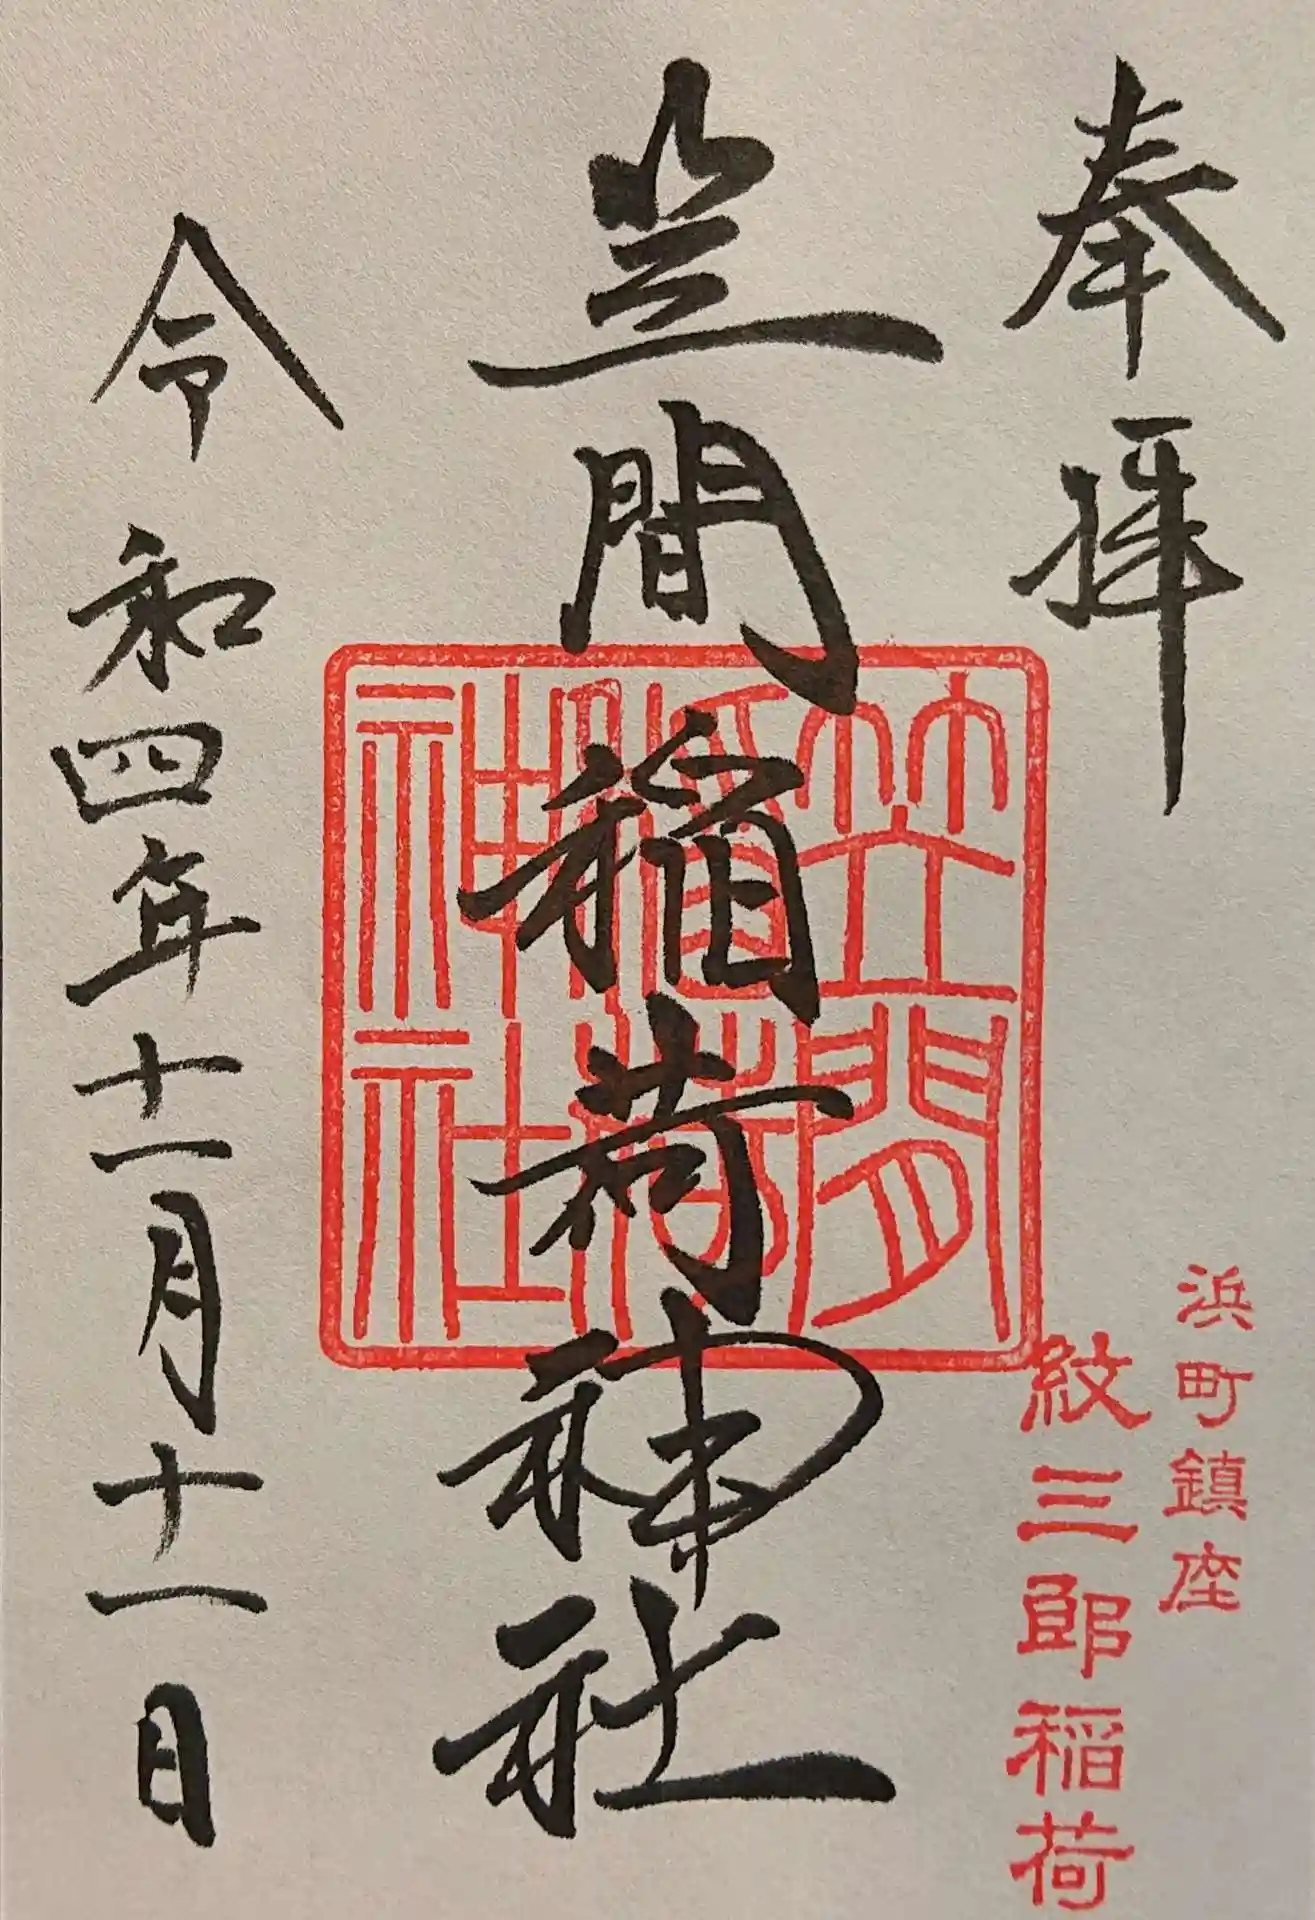 奉拝
浜町鎮座
紋三郎稲荷
笠間稲荷神社
笠間
稲荷
神社
令和四年十一月十一日